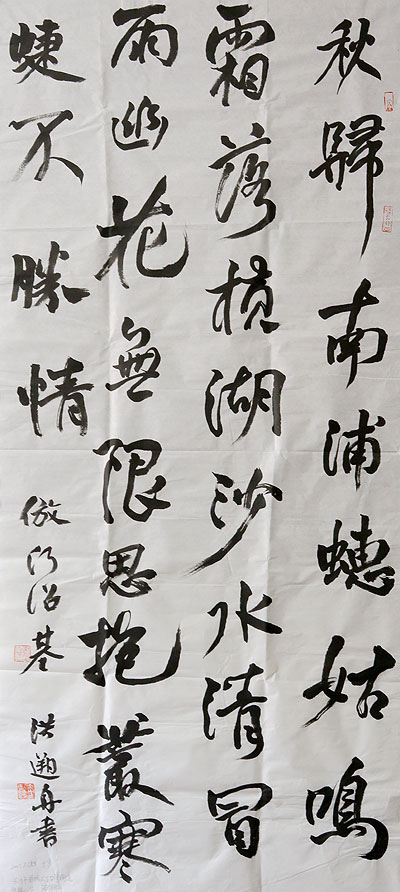 秋歸南浦蟪蛄鳴
霜落横湖沙水清冒
雨幽花無限思抱叢寒
蜨不勝情
倣何紹基
洪遡舟書